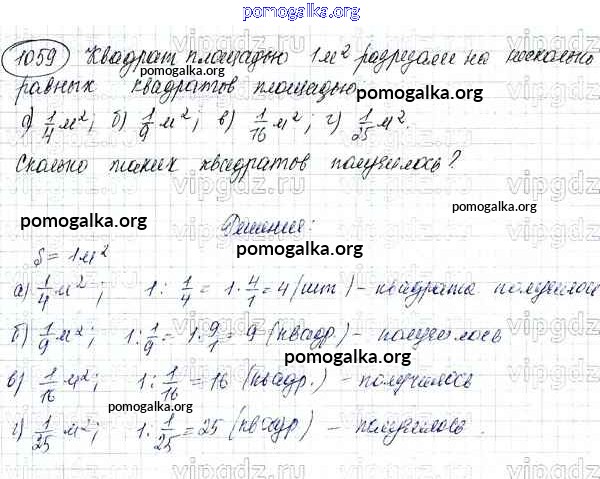 pomogalka.org
1059 Квадрат площадью 1 м² разрезали на несколько
pomogalka.org
равных квадратов площадью
pomogalka.org
а) 1/4 м²; б) 1/9 м²; в) 1/16 м²; г) 1/25 м².
Сколько таких квадратов получилось?
vipgdz.ru
pomogalka.org
pomogalka.org
Решение:
pomogalka.org
S = 1 м²
а) 1/4 м²; 1 : 1/4 = 1 · 4/1 = 4 (шт) – квадрата получилось
pomogalka.org
б) 1/9 м²; 1 : 1/9 = 1 · 9/1 = 9 (квадр) – получилось
pomogalka.org
в) 1/16 м²; 1 : 1/16 = 16 (квадр.) – получилось
pomogalka.org
г) 1/25 м²; 1 : 1/25 = 25 (квадр) – получилось.
vipgdz.ru